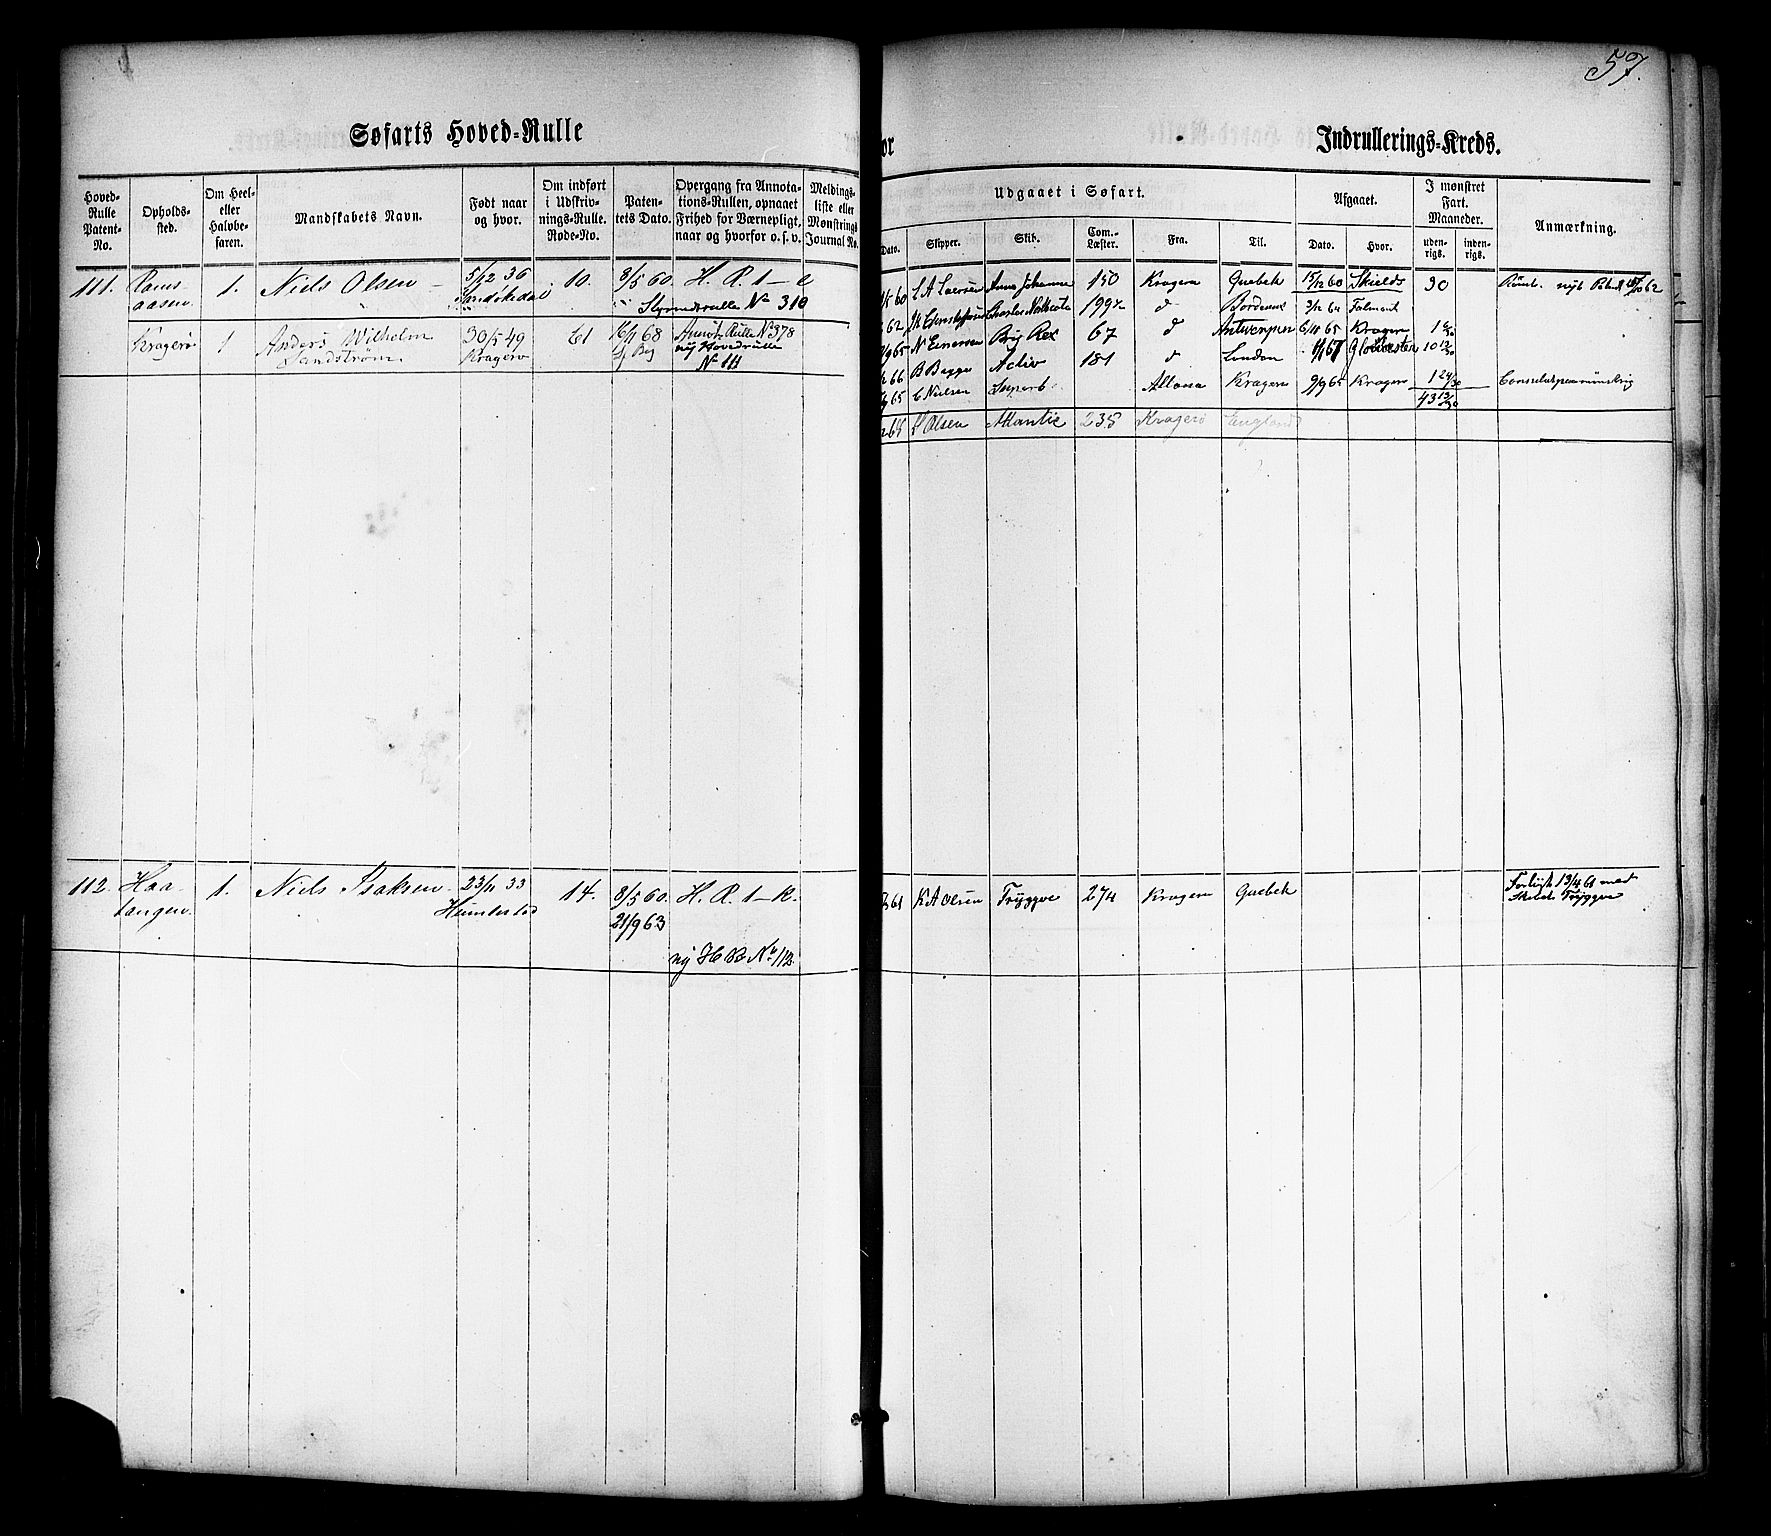 57.
Søfarts Hoved-Rulle
for
Indrullerings-Kreds.
Hoved-Rulle Patent-No.
Opholds-sted.
Om Heel- eller Halvbe-faren.
Mandskabets Navn.
Født naar og hvor.
Om indført i Udskriv-nings-Rulle. Rode-No.
Paten-tets Dato.
Overgang fra Annota-tions-Rullen, opnaaet Frihed for Værnepligt, naar og hvorfor o. s. v.
Meldings-liste eller Mønstrings Journal No.
Udgaaet i Søfart.
Dato.
Skipper.
Skib.
Com. Læster.
Fra.
Til.
Afgaaet.
Dato.
Hvor.
I mønstret Fart. Maaneder.
uden-rigs.
inden-rigs.
Anmærkning.
111. Rams- 1. Niels Olsen 5/12 36 10. 8/5 60. H. R. 1 - e
aasen Sandøkedal Styrmdsrulle No 310
Kragerø 1 Anders Wilhelm 30/5 49 61 16/1 68 Annot. Rulle No 378
Sandstrøm Kragerø Beg ny Hovedrulle
No 111
60 L A Larsen Anna Johanne 150 Kragerø Quebek 15/12 60 Skields 30 nyt Patent 62
62 Charles 199 d Bordeaux 3/12 64 Falmout
65 N Einersen Brig Rex 67 d Antwerpen 6/11 65 Kragerø 1
66 B Bagge Activ 181 d London 67 Glocester 10 12/30
65 C Nielsen Superb Altona Kragerø 9/9 65 Kragerø 1 24/30
43 13/30
68 L Olsen Atlantic 235 Kragerø England
112. Haa- 1. Niels Isaksen 23/11 33 14. 8/5 60. H. R. 1 - k.
tangen Humlestad 21/9 63
ny H R No 112
61 K A Olsen Tryggve 274 Kragerø Quebek Forliist 13/4 61 med
Skibet Tryggve